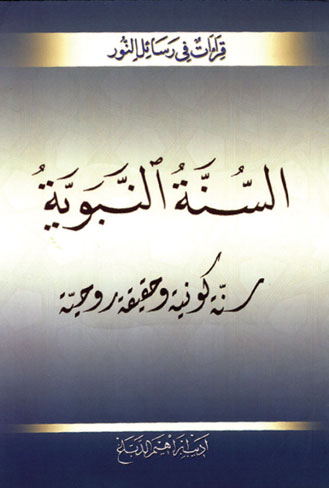 قراءات في رسائل النور
السُّنَّةُ النَّبَوِيَّةُ
سنّة كونية وحقيقة روحيّة
اديب إبراهيم الدباغ